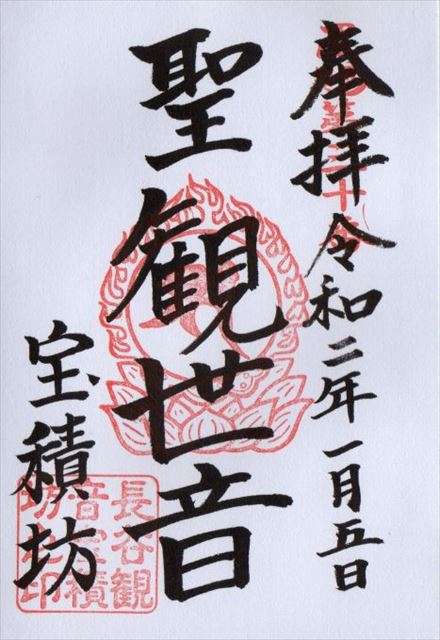 奉拝 令和二年一月五日
聖観世音
宝積坊
長谷観
音宝積
坊之印